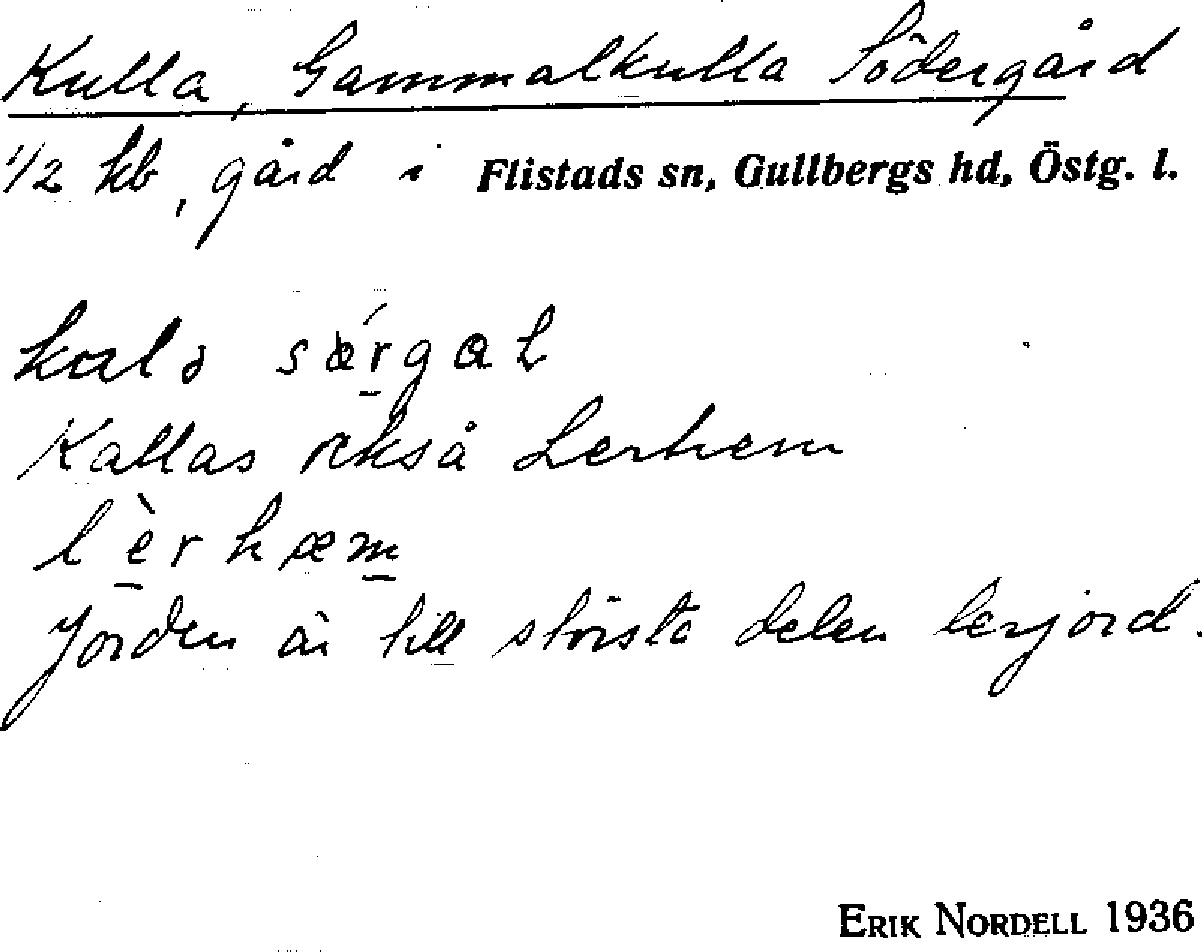 Kulla, Gammalkulla Södergård
1/2 kb, gård i Flistads sn, Gullbergs hd, Östg. l.
sǽrgaL
Kallas också Lerhem
lèrhæm
Jorden är till största delen lerjord.
ERIK NORDELL 1936